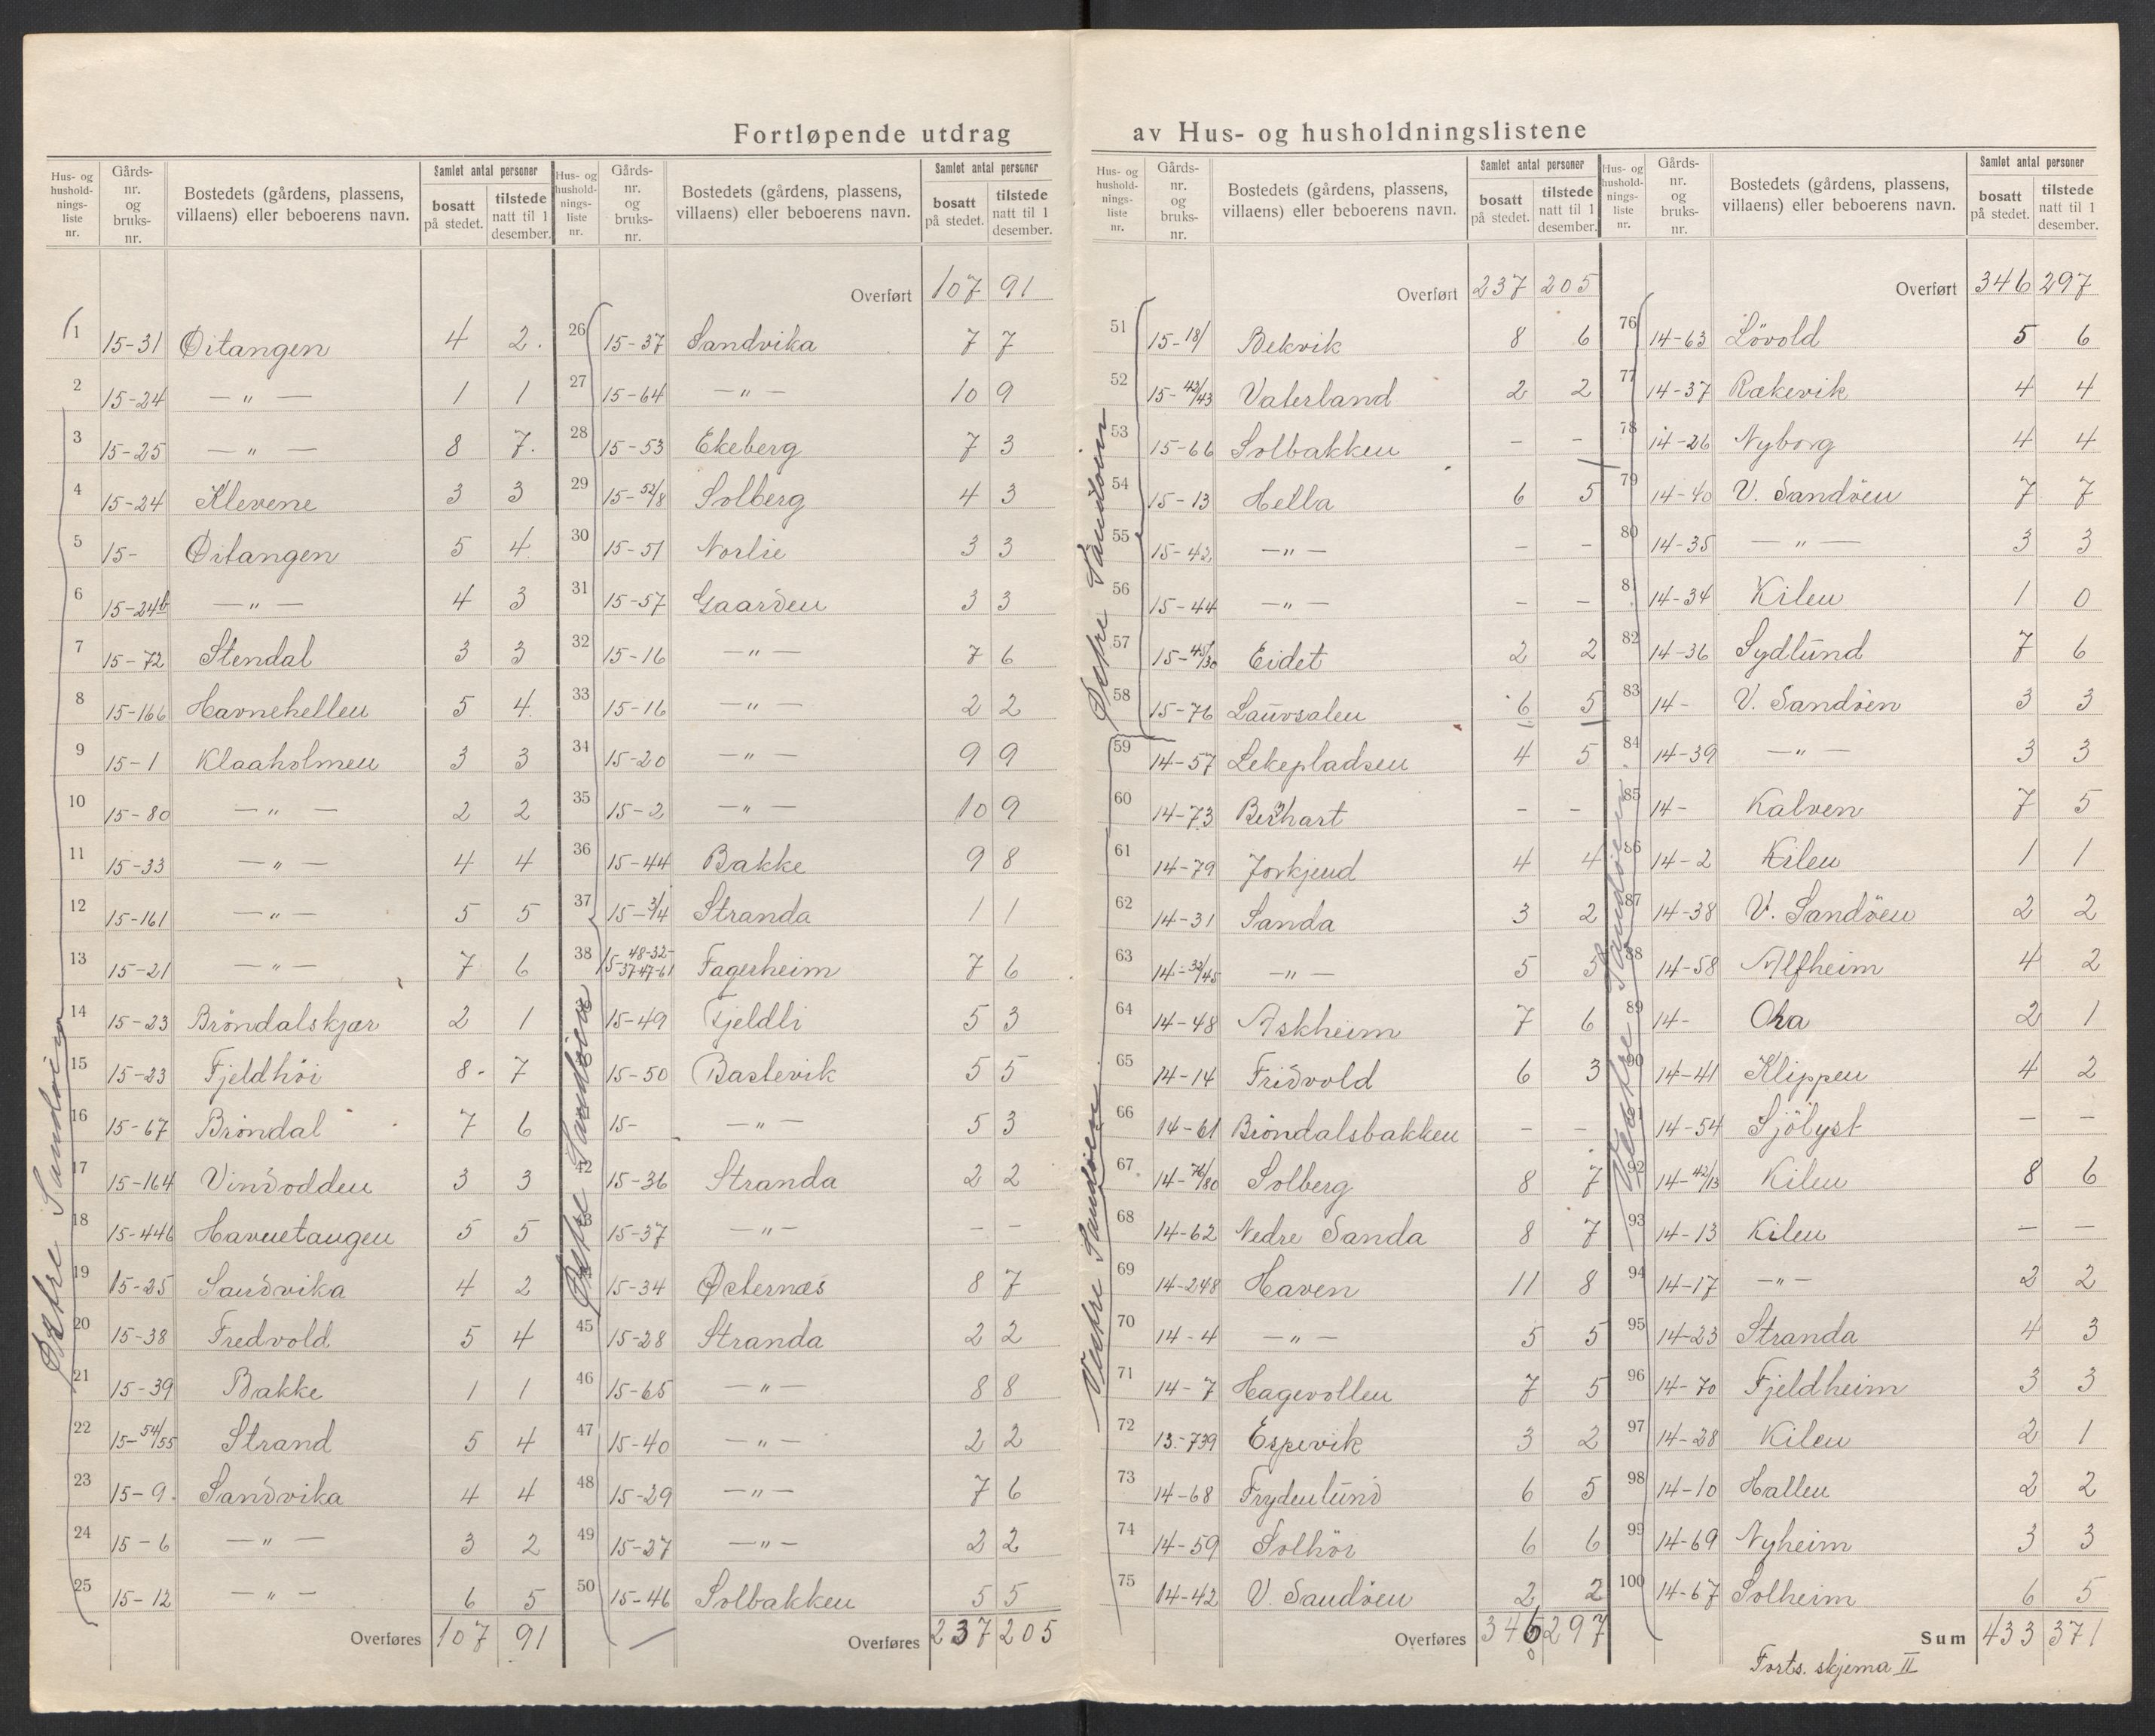 Fortløpende utdrag av Hus- og husholdningslistene
Hus- og hushold- nings- liste nr. | Gårds- nr. og bruks- nr. | Bostedets (gårdens, plassens, villaens) eller beboerens navn. | Samlet antal personer | bosatt på stedet. | tilstede natt til 1 desember.
1 15-31 Øitangen 4 2.
2 15-24 — " — 1 1
3 15-25 — " — 8 7.
4 15-24 Klevene 3 3
5 15- Øitangen 5 4
6 15-24b — " — 4 3
7 15-72 Stendal 3 3
8 15-166 Havnehellen 5 4
9 15-1 Klaaholmen 3 3
10 15-80 — " — 2 2
11 15-33 — " — 4 4
12 15-161 — " — 5 5
13 15-21 — " — 7 6
14 15-23 Bröndalskjær 2 1
15 15-23 Fjeldhöi 8 7
16 15-67 Bröndal 7 6
17 15-164 Vindodden 3 3
18 15-446 Havnetangen 5 5
19 15-25 Sandvika 4 2
20 15-38 Fredvold 5 4
21 15-39 Bakke 1 1
22 15-54/55 Strand 5 4
23 15-9 Sandvika 4 4
24 15-6 — " — 3 2
25 15-12 — " — 6 5
Overføres 107 91
Østre Sandöen
Hus- og hushold- nings- liste nr. | Gårds- nr. og bruks- nr. | Bostedets (gårdens, plassens, villaens) eller beboerens navn. | Samlet antal personer | bosatt på stedet. | tilstede natt til 1 desember.
Overført 107 91
26 15-37 Sandvika 7 7
27 15-64 — " — 10 9
28 15-53 Ekeberg 7 3
29 15-52/8 Solberg 4 3
30 15-51 Norlie 3 3
31 15-57 Gaarden 3 3
32 15-16 — " — 7 6
33 15-16 — " — 2 2
34 15-20 " — 9 9
35 15-2 — " — 10 9
36 15-44 Bakke 9 8
37 15-3/4 Stranda 1 1
38 15-48-32-37-47-61 Fagerheim 7 6
15-49 Fjeldli 5 3
15-50 Bastevik 5 5
15- — " — 5 3
42 15-36 Stranda 2 2
15-37 — " — — —
15-34 Østernæs 8 7
45 15-28 Stranda 2 2
46 15-65 — " — 8 8
47 15-40 — " — 2 2
48 15-29 — " — 7 6
49 15-27 — " — 2 2
50 15-46 Solbakken 5 5
Overføres 237 205
Østre Sandöen
Hus- og hushold- nings- liste nr. | Gårds- nr. og bruks- nr. | Bostedets (gårdens, plassens, villaens) eller beboerens navn. | Samlet antal personer | bosatt på stedet. | tilstede natt til 1 desember.
Overført 237 205
51 15-18/ Bekvik 8 6
52 15-42/43 Vaterland 2 2
53 15-66 Solbakken - -
54 15-13 Hella 6 5
55 15-42 — " — - -
56 15-44 — " — - -
57 15-45/30 Eidet 2 2
58 15-76 Laursalen 6 5
59 14-57 Lekepladsen 4 5
60 14-73 - -
61 14-79 4 4
62 14-31 Sanda 3 2
63 14-32/45 — " — 5 5
64 14-48 Askheim 7 6
65 14-14 Fridvold 6 3
66 14-61 Bröndalsbakken - -
67 14-76/80 Solberg 8 7
68 14-62 Nedre Sanda 8 7
69 14-248 Haven 11 8
70 14-4 — " — 5 5
71 14-7 Hagevollen 7 5
72 13-739 Espevik 3 2
73 14-68 Frydenlund 6 5
74 14-59 Solhör 6 6
75 14-42 V. Sandöen 2 2
Overføres 346 297
Østre Sandöen
Vestre Sandöen
Hus- og hushold- nings- liste nr. | Gårds- nr. og bruks- nr. | Bostedets (gårdens, plassens, villaens) eller beboerens navn. | Samlet antal personer | bosatt på stedet. | tilstede natt til 1 desember.
Overført 346 297
76 14-63 Lövold 5 6
77 14-37 Rækevik 4 4
78 14-26 Nyborg 4 4
79 14-40 V. Sandöen 7 7
80 14-35 — " — 3 3
81 14-34 Kilen 1 0
82 14-36 Sydlund 7 6
83 14- V. Sandöen 3 3
84 14-39 — " — 3 3
85 14- Kalven 7 5
86 14-2 Kilen 1 1
87 14-38 V. Sandöen 2 2
88 14-58 Alfheim 4 2
89 14- Ora 2 1
90 14-41 Klippen 4 2
14-54 Sjölyst — —
92 14-42/13 Kilen 8 6
93 14-13 Kilen — —
94 14-17 — " — 2 2
95 14-23 Stranda 4 3
96 14-70 Fjeldheim 3 3
97 14-28 Kilen 2 1
98 14-10 Hallen 2 2
99 14-69 Nyheim 3 3
100 14-67 Solheim 6 5
Sum 433 371
Vestre Sandöen
Forts. skjema II